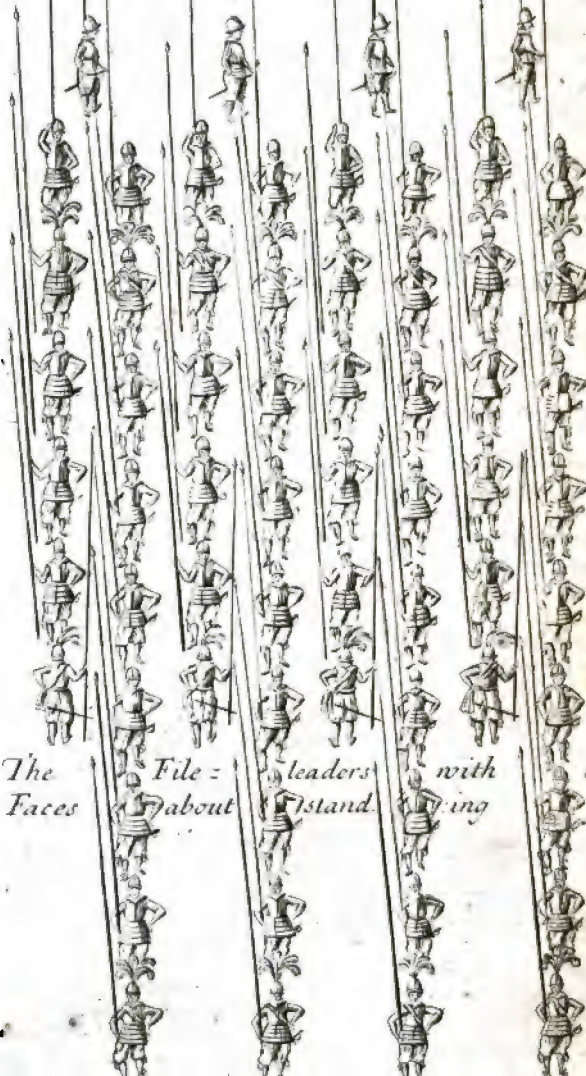 The File = leaders with
Faces about standing